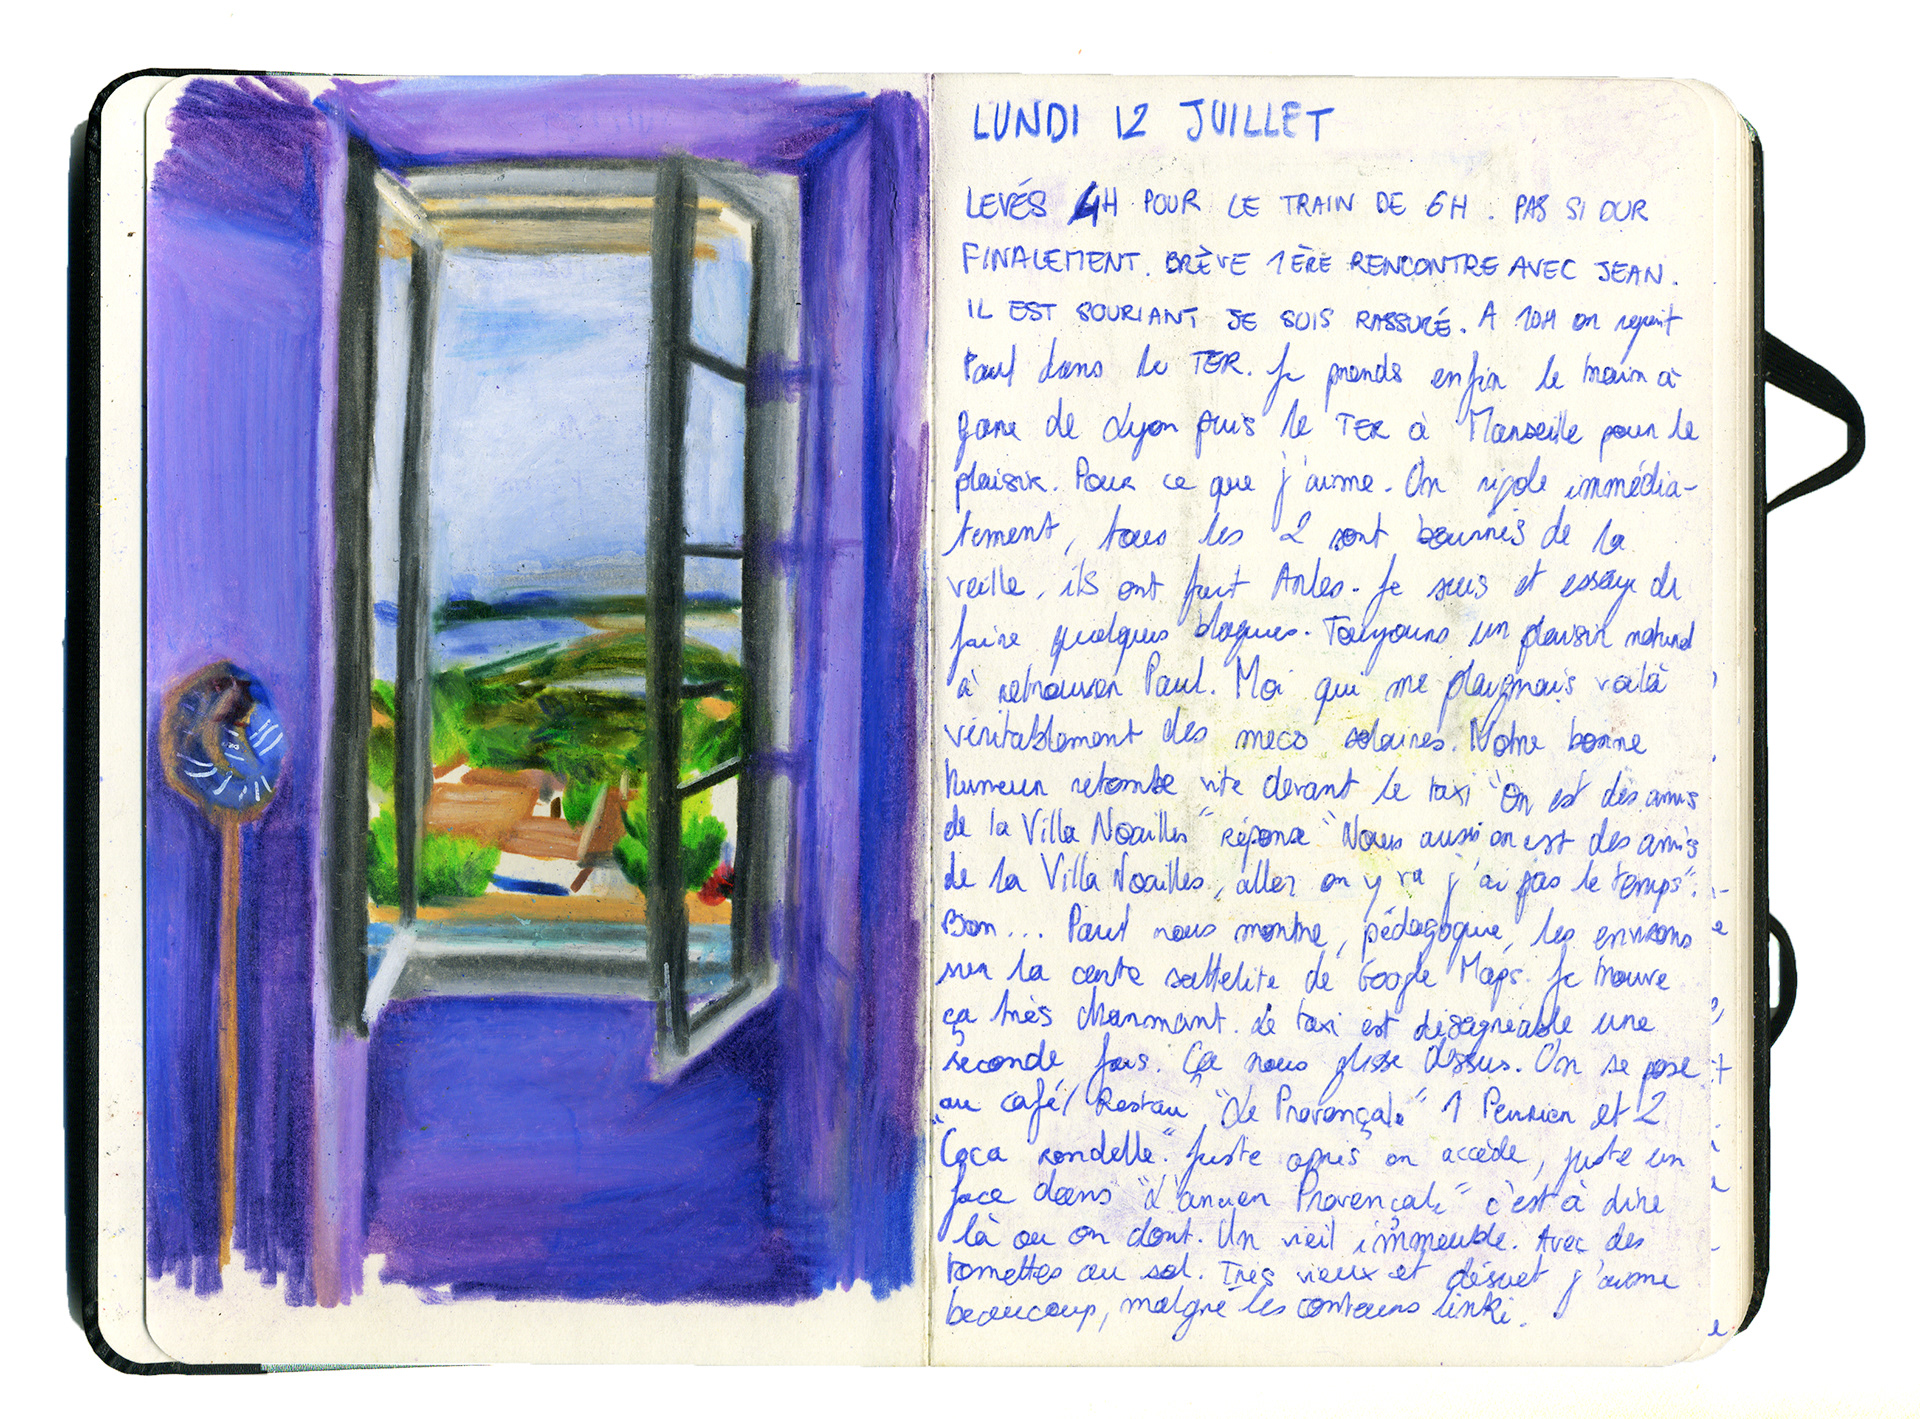 LUNDI 12 JUILLET
LEVÉS 4H POUR LE TRAIN DE 6H. PAS SI DUR
FINALEMENT. BRÈVE 1ÈRE RENCONTRE AVEC JEAN.
IL EST SOURIANT JE SUIS RASSURÉ. A 10H on rejoint
Paul dans le TER. Je prends enfin le train à
gare de Lyon puis le TER à Marseille pour le
plaisir. Pour ce que j'aime. On rigole immédia-
tement, tous les 2 sont bourrés de la
veille, ils ont fait Arles. Je suis et essaye de
faire quelques blagues. Toujours un plaisir naturel
à retrouver Paul. Moi qui me plaignais voilà
véritablement des mecs solaires. Notre bonne
humeur retombe vite devant le taxi "On est des amis
de la Villa Noailles" réponse "Nous aussi on est des amis
de la Villa Noailles, allez on y va j'ai pas le temps".
Bon... Paul nous montre, pédagogue, les environs
sur la carte sattelite de Google Maps. Je trouve
ça très charmant. Le taxi est désagréable une
seconde fois. Ça nous glisse dessus. On se pose
au café/Restau "Le Provençale" 1 Perrier et 2
"Coca rondelle". Juste après on accède, juste en
face dans "L'ancien Provençale" c'est à dire
là ou on dort. Un vieil immeuble. Avec des
tomettes au sol. Très vieux et désuet j'aime
beaucoup, malgré les contours